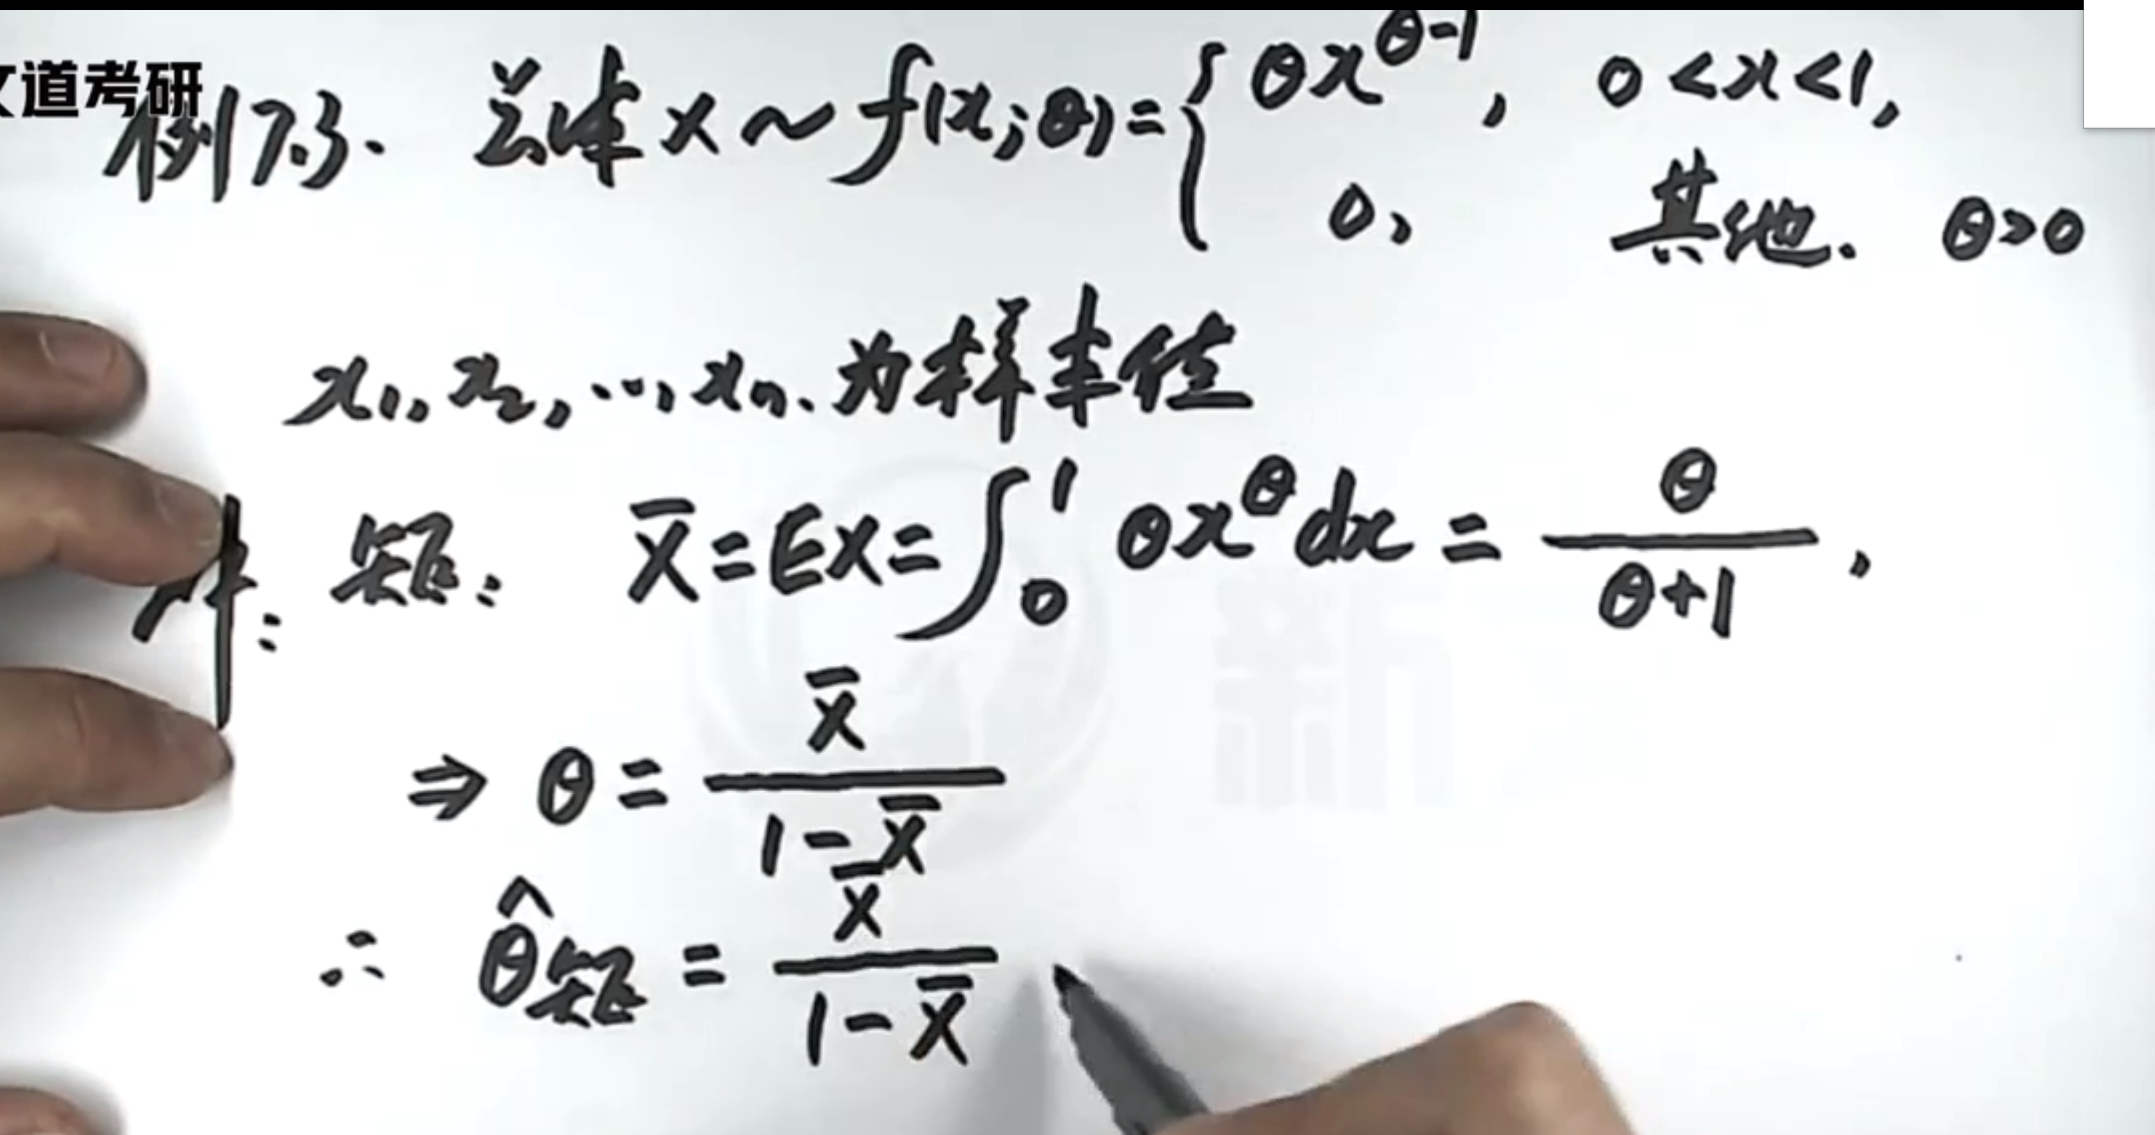 文道考研
例7.3. 总体X~f(x;θ)={θx^{θ-1}, 0<x<1,
0, 其他. θ>0
x₁,x₂,…,xₙ.为样本值
解: 矩: X̄=EX=∫₀¹ θx^θ dx = θ/(θ+1),
⇒ θ = X̄/(1-X̄)
∴ θ̂矩 = X̄/(1-X̄)